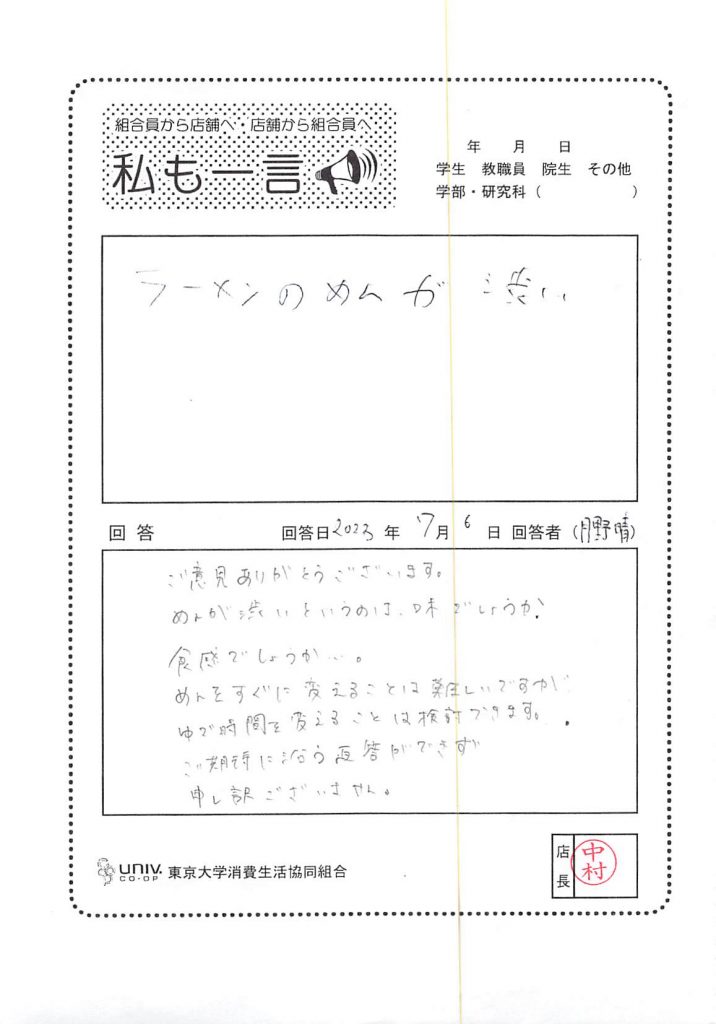 組合員から店舗へ・店舗から組合員へ
私も一言
年 月 日
学生 教職員 院生 その他
学部・研究科( )
ラーメンのめんが渋い
回答 回答日2023年7月6日 回答者(月野晴)
ご意見ありがとうございます。
めんが渋いというのは、味でしょうか?
食感でしょうか…。
めんをすぐに変えることは難しいですが
ゆで時間を変えることは検討できます。
ご期待に沿う返答ができず
申し訳ございません。
UNIV. CO-OP 東京大学消費生活協同組合
店長 中村